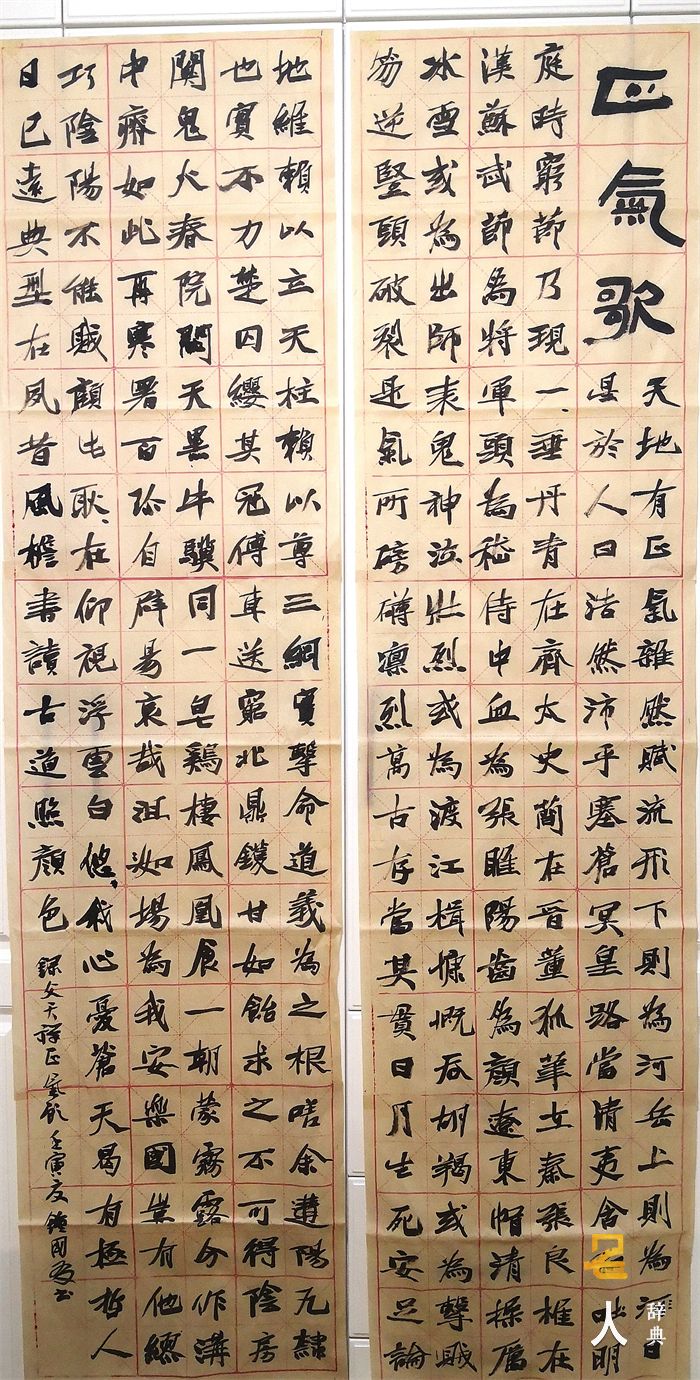 正氣歌
天地有正氣雜然賦流形下則為河岳上則為河日
星於人曰浩然沛乎塞蒼冥皇路當清夷含吐明
庭時窮節乃現一、垂丹青在齊太史簡在晉董狐筆在秦張良椎在
漢蘇武節為將軍頭為嵇侍中血為張睢陽齒為顏遼東帽清操厲
冰雪或為出師表鬼神泣壯烈或為渡江楫慷慨吞胡羯或為擊賊
笏逆豎頭破裂是氣所磅礴凜烈萬古存當其貫日月生死安足論
地維賴以立天柱賴以尊三綱實擊命道義為之根嗟余遘陽九隸
也實不力楚囚纓其冠傳車送窮北鼎鑊甘如飴求之不可得陰房
闃鬼火春院閟天黑牛驥同一皂鷄棲鳳凰食一朝蒙霧露分作溝
中瘠如此再寒暑百沴自辟易哀哉沮洳場為我安樂國豈有他繆
巧陰陽不能賊顧此耿、在仰視浮雲白悠、我心憂蒼天曷有極哲人
日已遠典型在夙昔風檐書讀古道照顏色
錄文天祥正氣歌壬寅夏鐘國書
名人辞典